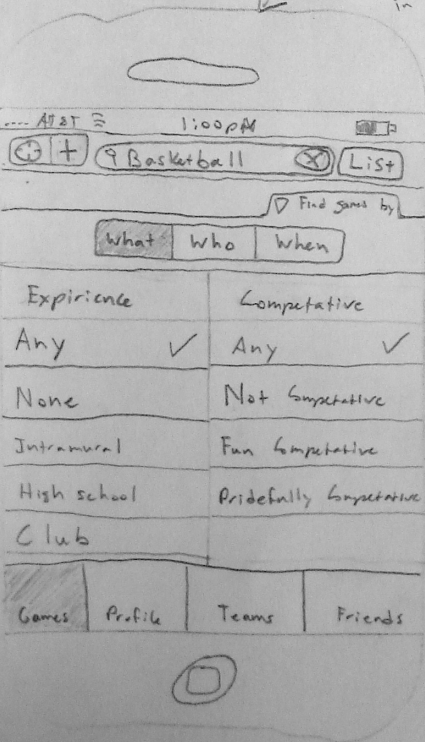 in
.... AT&T 1:00pM
+ Basketball X List
Find games by
What Who When
Expirience Competative
Any ✓ Any ✓
None Not Competative
Intramural Fun Competative
High school Pridefully Competative
Club
Games Profile Teams Friends